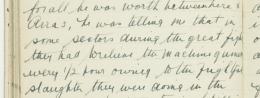 for all he was worth between here &
Arras, he was telling me that in
some sectors during the great fight
they had to relieve the machine gunners
every 1/2 hour owing to the frightful
slaughter they were doing in the